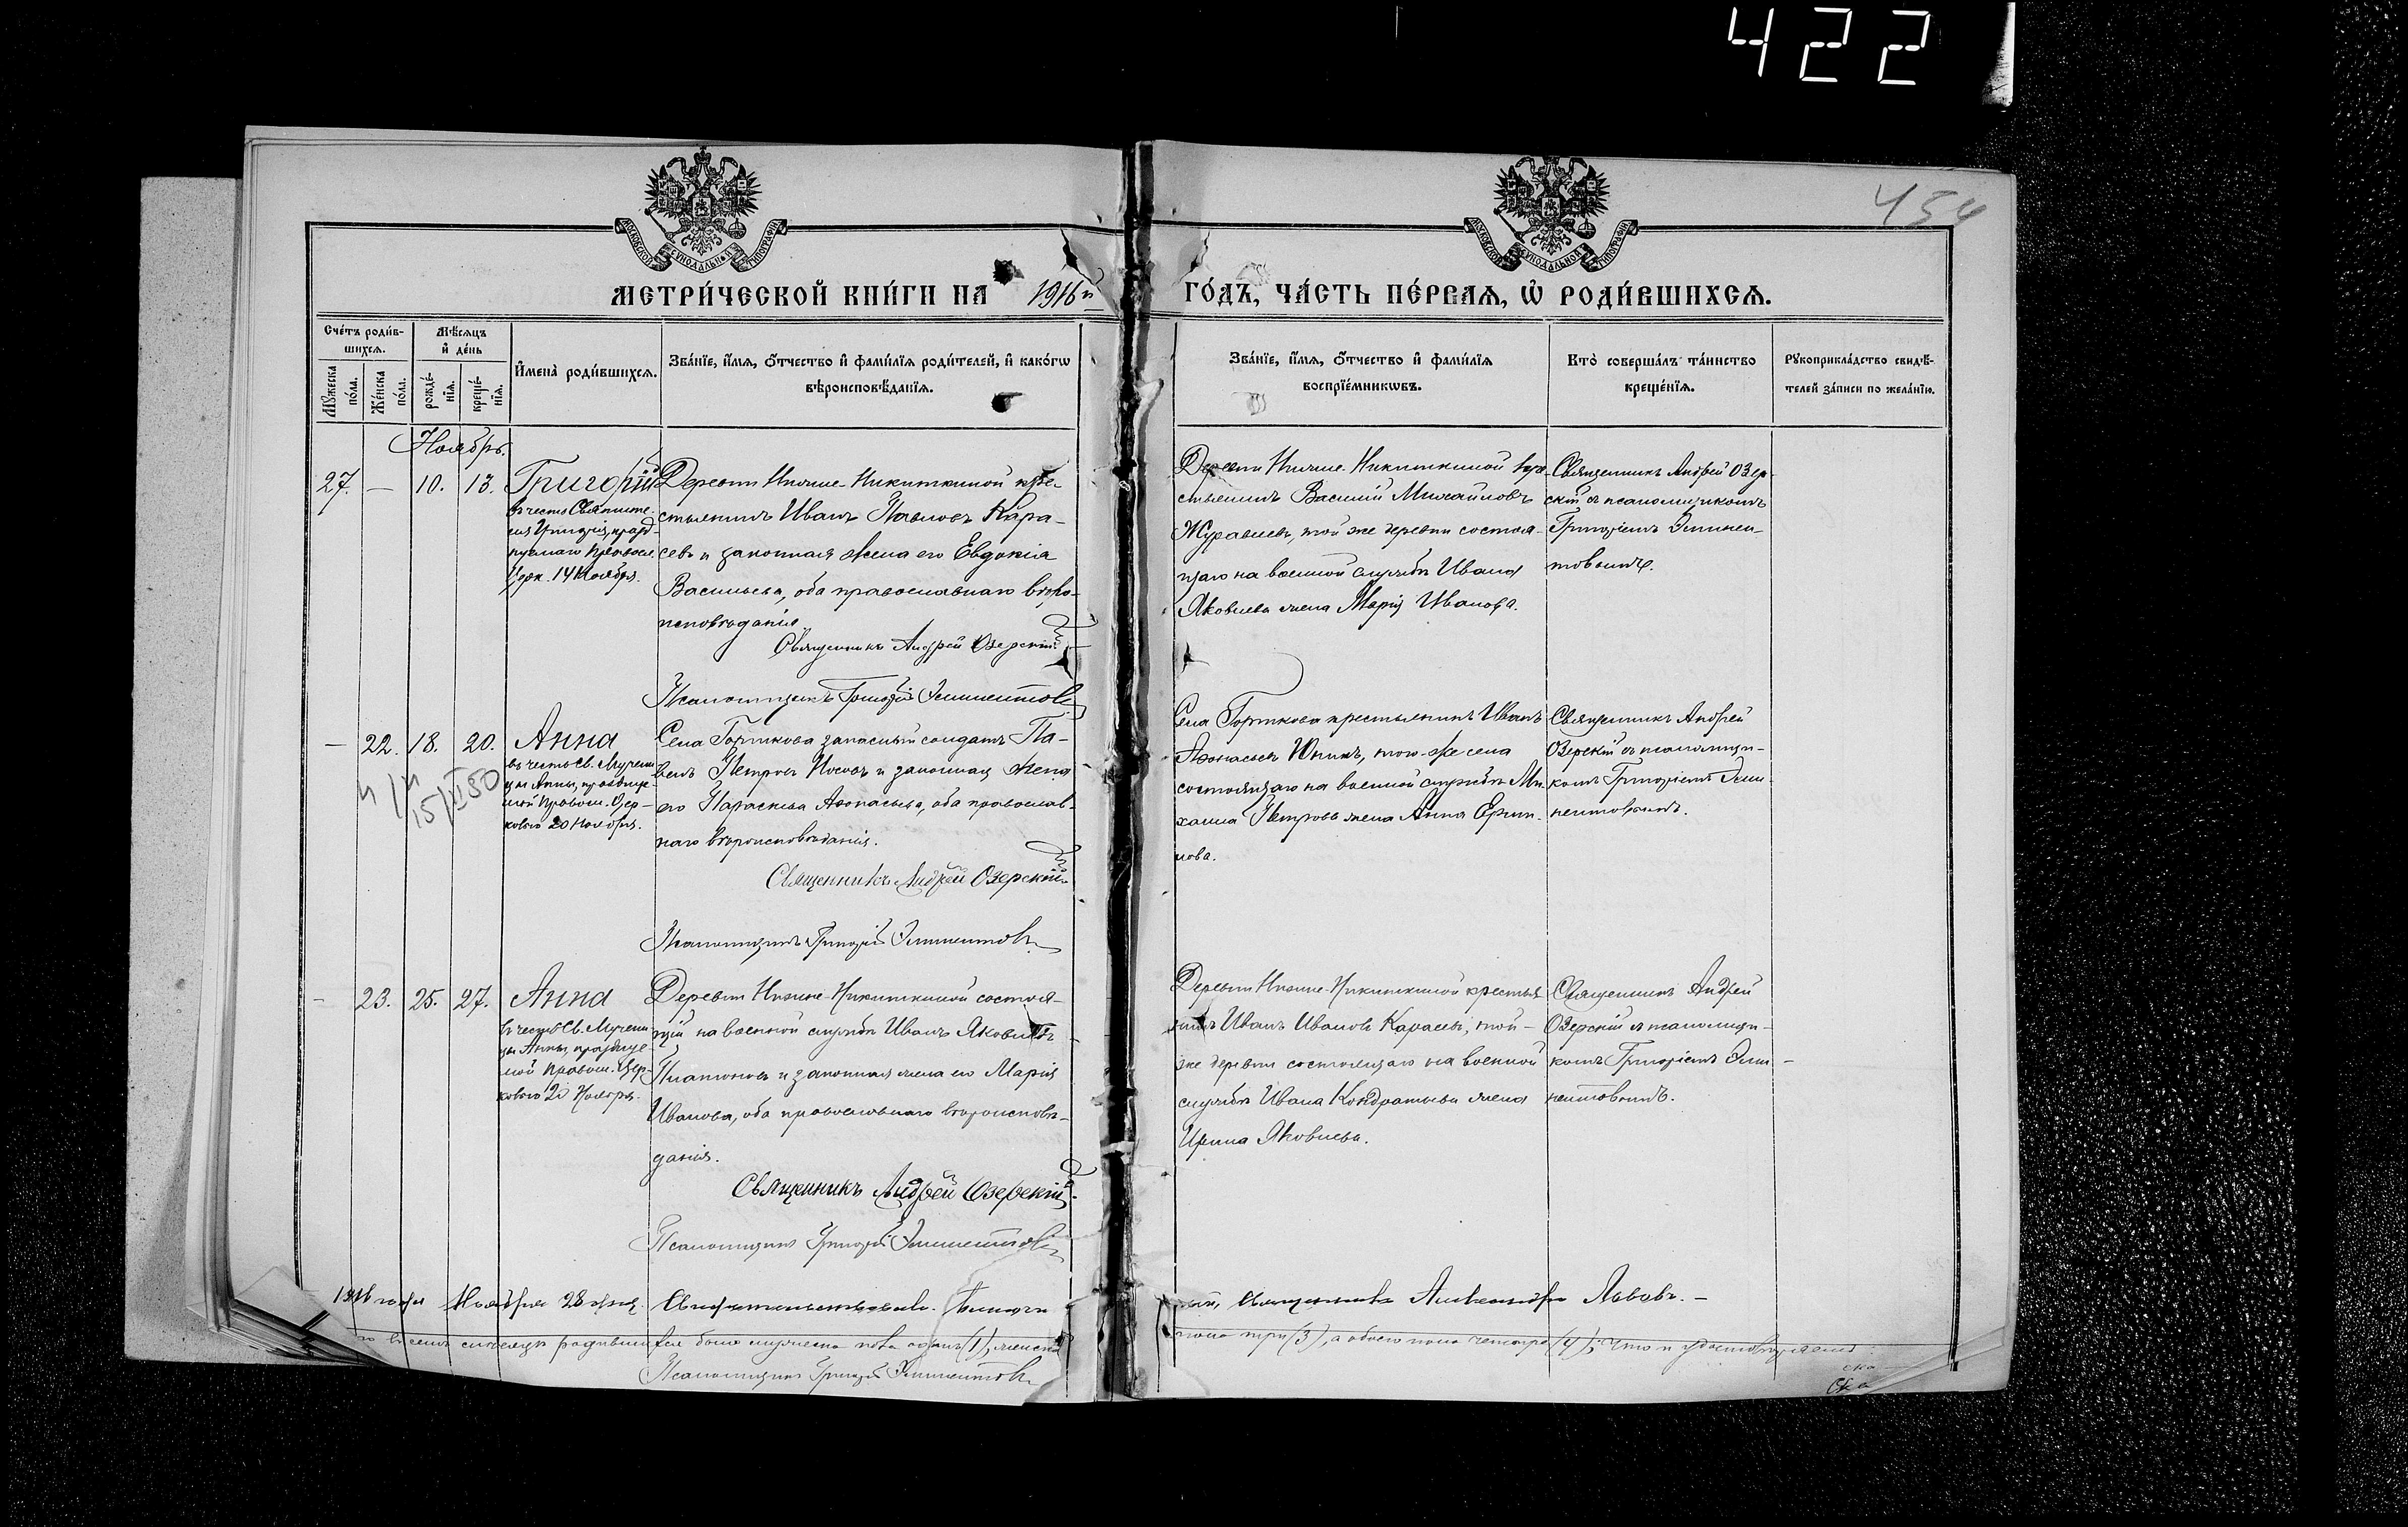 422
454
МОСКОВСКОЙ СѴНОДАЛЬНОЙ ТИПОГРАФІИ
МОСКОВСКОЙ СѴНОДАЛЬНОЙ ТИПОГРАФІИ
МЕТРИ́ЧЕСКОЙ КНИ́ГИ НА 1916 й ГО́ДЪ, ЧА́СТЬ ПЕ́РВАѦ, Ѡ҆ РОДИ́ВШИХСѦ.
Сче́тъ роди́в-
шихсѧ.
Мꙋ́жеска по́ла.
Же́нска по́ла.
Мѣ́сѧцъ
и҆ де́нь
рожде́-
нїѧ.
креще́-
нїѧ.
И҆мена̀ роди́вшихсѧ.
Зва́нїе, и҆́мѧ, ѻ҆́тчество и҆ фами́лїѧ роди́телей, и҆ како́гѡ
вѣроисповѣ́данїѧ.
Зва́нїе, и҆́мѧ, ѻ҆́тчество и҆ фами́лїѧ
воспрїе́мникѡвъ.
Кто̀ соверша́лъ та́инство
креще́нїѧ.
Рꙋкоприкла́дство свидѣ́-
телей за́писи по жела́нїю.
Ноябрь.
27. — 10. 13. Григорій
въ честь Святите-
ля Григорія, празд-
нуемаго Православ.
Церк. 14 Ноября.
Деревни Нижне-Никиткиной кре-
стьянинъ Иванъ Павловъ Кара-
севъ и законная жена его Евдокія
Васильева, оба православнаго вѣро-
исповѣданія.
Священникъ Андрей Озерскій
Псаломщикъ Григорій
Деревни Нижне-Никиткиной кре-
стьянинъ Василій Михайловъ
Журавлевъ, той же деревни состоя-
щаго на военной службѣ Ивана
Яковлева жена Марія Иванова.
Священникъ Андрей Озер-
скій съ псаломщикомъ
Григоріемъ
— 22. 18. 20. Анна
въ честь Св. Мучени
цы Анны, празднуе-
мой Правосл. Цер-
ковью 20 Ноября.
15/II 50
Села Горткова запасный солдатъ Па-
велъ Петровъ Носовъ и законная жена
его Параскева Аѳонасьева, оба православ-
наго вѣроисповѣданія.
Священникъ Андрей Озерскій
Псаломщикъ Григорій
Села Горткова крестьянинъ Иванъ
Аѳонасьевъ того-же села
состоящаго на военной службѣ Ми-
хаила Петрова жена Анна Ерми-
лова.
Священникъ Андрей
Озерскій съ псаломщи-
комъ Григоріемъ
— 23. 25. 27. Анна
въ честь Св. Мучени
цы Анны, празднуе-
мой Правосл. Цер-
ковью 20 Ноября.
Деревни Нижне-Никиткиной состоя-
щій на военной службѣ Иванъ Яковлевъ
Платоновъ и законная жена его Марія
Иванова, оба православнаго вѣроисповѣ-
данія.
Священникъ Андрей Озерскій
Псаломщикъ Григорій
Деревни Нижне-Никиткиной крестья-
нинъ Иванъ Ивановъ Карасевъ, той-
же деревни состоящаго на военной
службѣ Ивана Кондратьева жена
Ирина Яковлева.
Священникъ Андрей
Озерскій съ псаломщи-
комъ Григоріемъ
1916 года Ноября 28 дня. Свидѣтельствовалъ священникъ Александръ Львовъ. —
въ семъ мѣсяцѣ родившихся было мужеска пола одинъ (1), женска пола три (3), а обоего пола четыре (4); Что и удостовѣряемъ:
Псаломщикъ Григорій